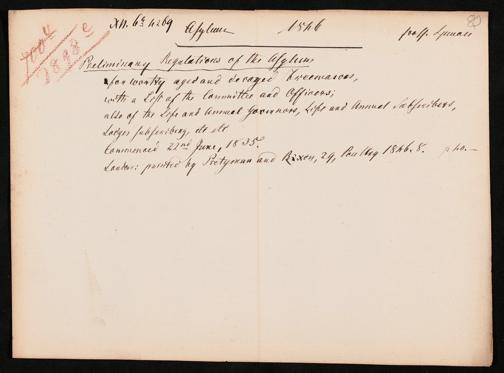 80
XII. 6b 4269 Asylum 1846
7004
2898 e
Preliminary Regulations of the Asylum
for worthy aged and decayed Freemasons,
with a List of the Committee and Officers;
also of the Life and Annual Governors, Life and Annual Subscribers,
Lodges subscribing, etc etc
Commenced 22nd June, 1835.
London: printed by Pretyman and Rixon, 29, Poultry 1846. 8. p 40. —